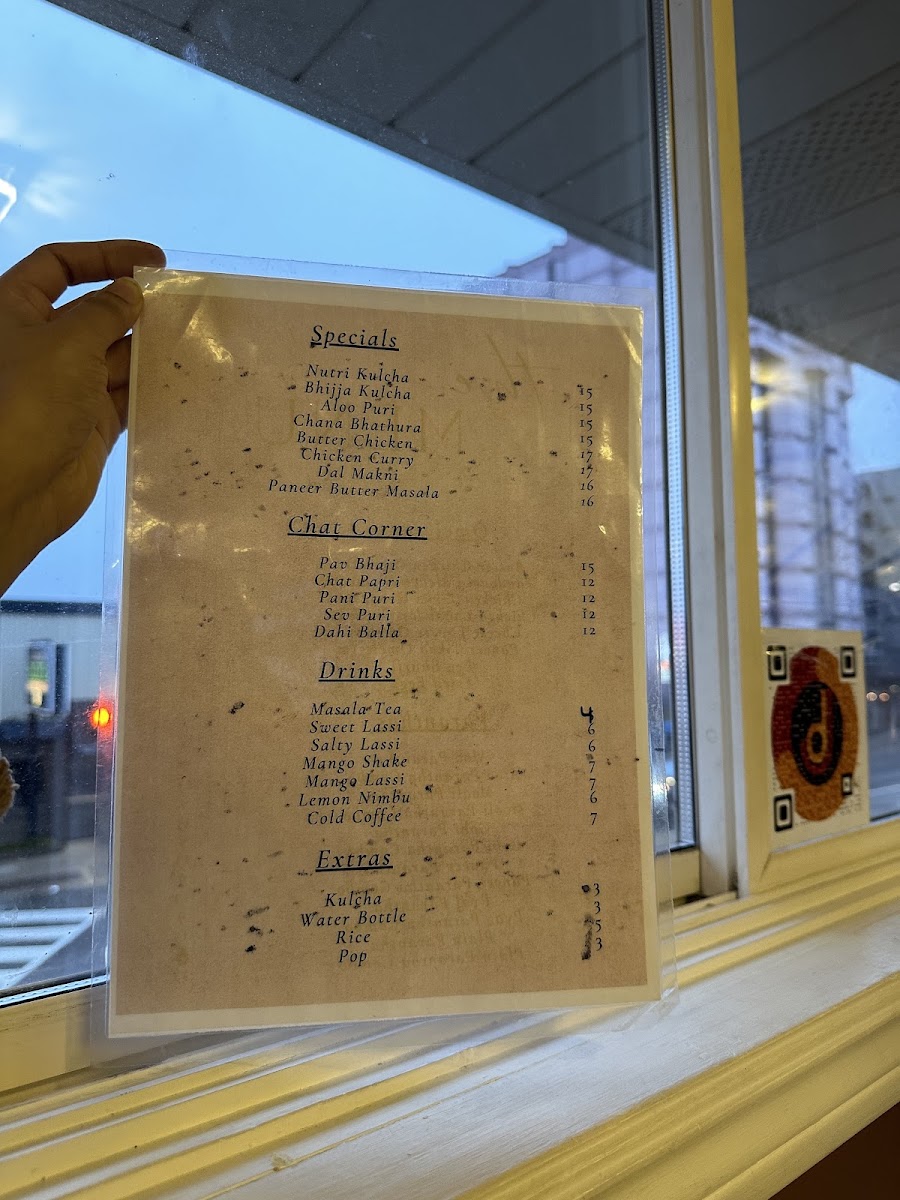 Specials
Nutri Kulcha 15
Bhijja Kulcha 15
Aloo Puri 15
Chana Bhathura 15
Butter Chicken 17
Chicken Curry 17
Dal Makni 16
Paneer Butter Masala 16
Chat Corner
Pav Bhaji 15
Chat Papri 12
Pani Puri 12
Sev Puri 12
Dahi Balla 12
Drinks
Masala Tea 4
Sweet Lassi 6
Salty Lassi 6
Mango Shake 7
Mango Lassi 7
Lemon Nimbu 6
Cold Coffee 7
Extras
Kulcha 3
Water Bottle 3
Rice 5
Pop 3